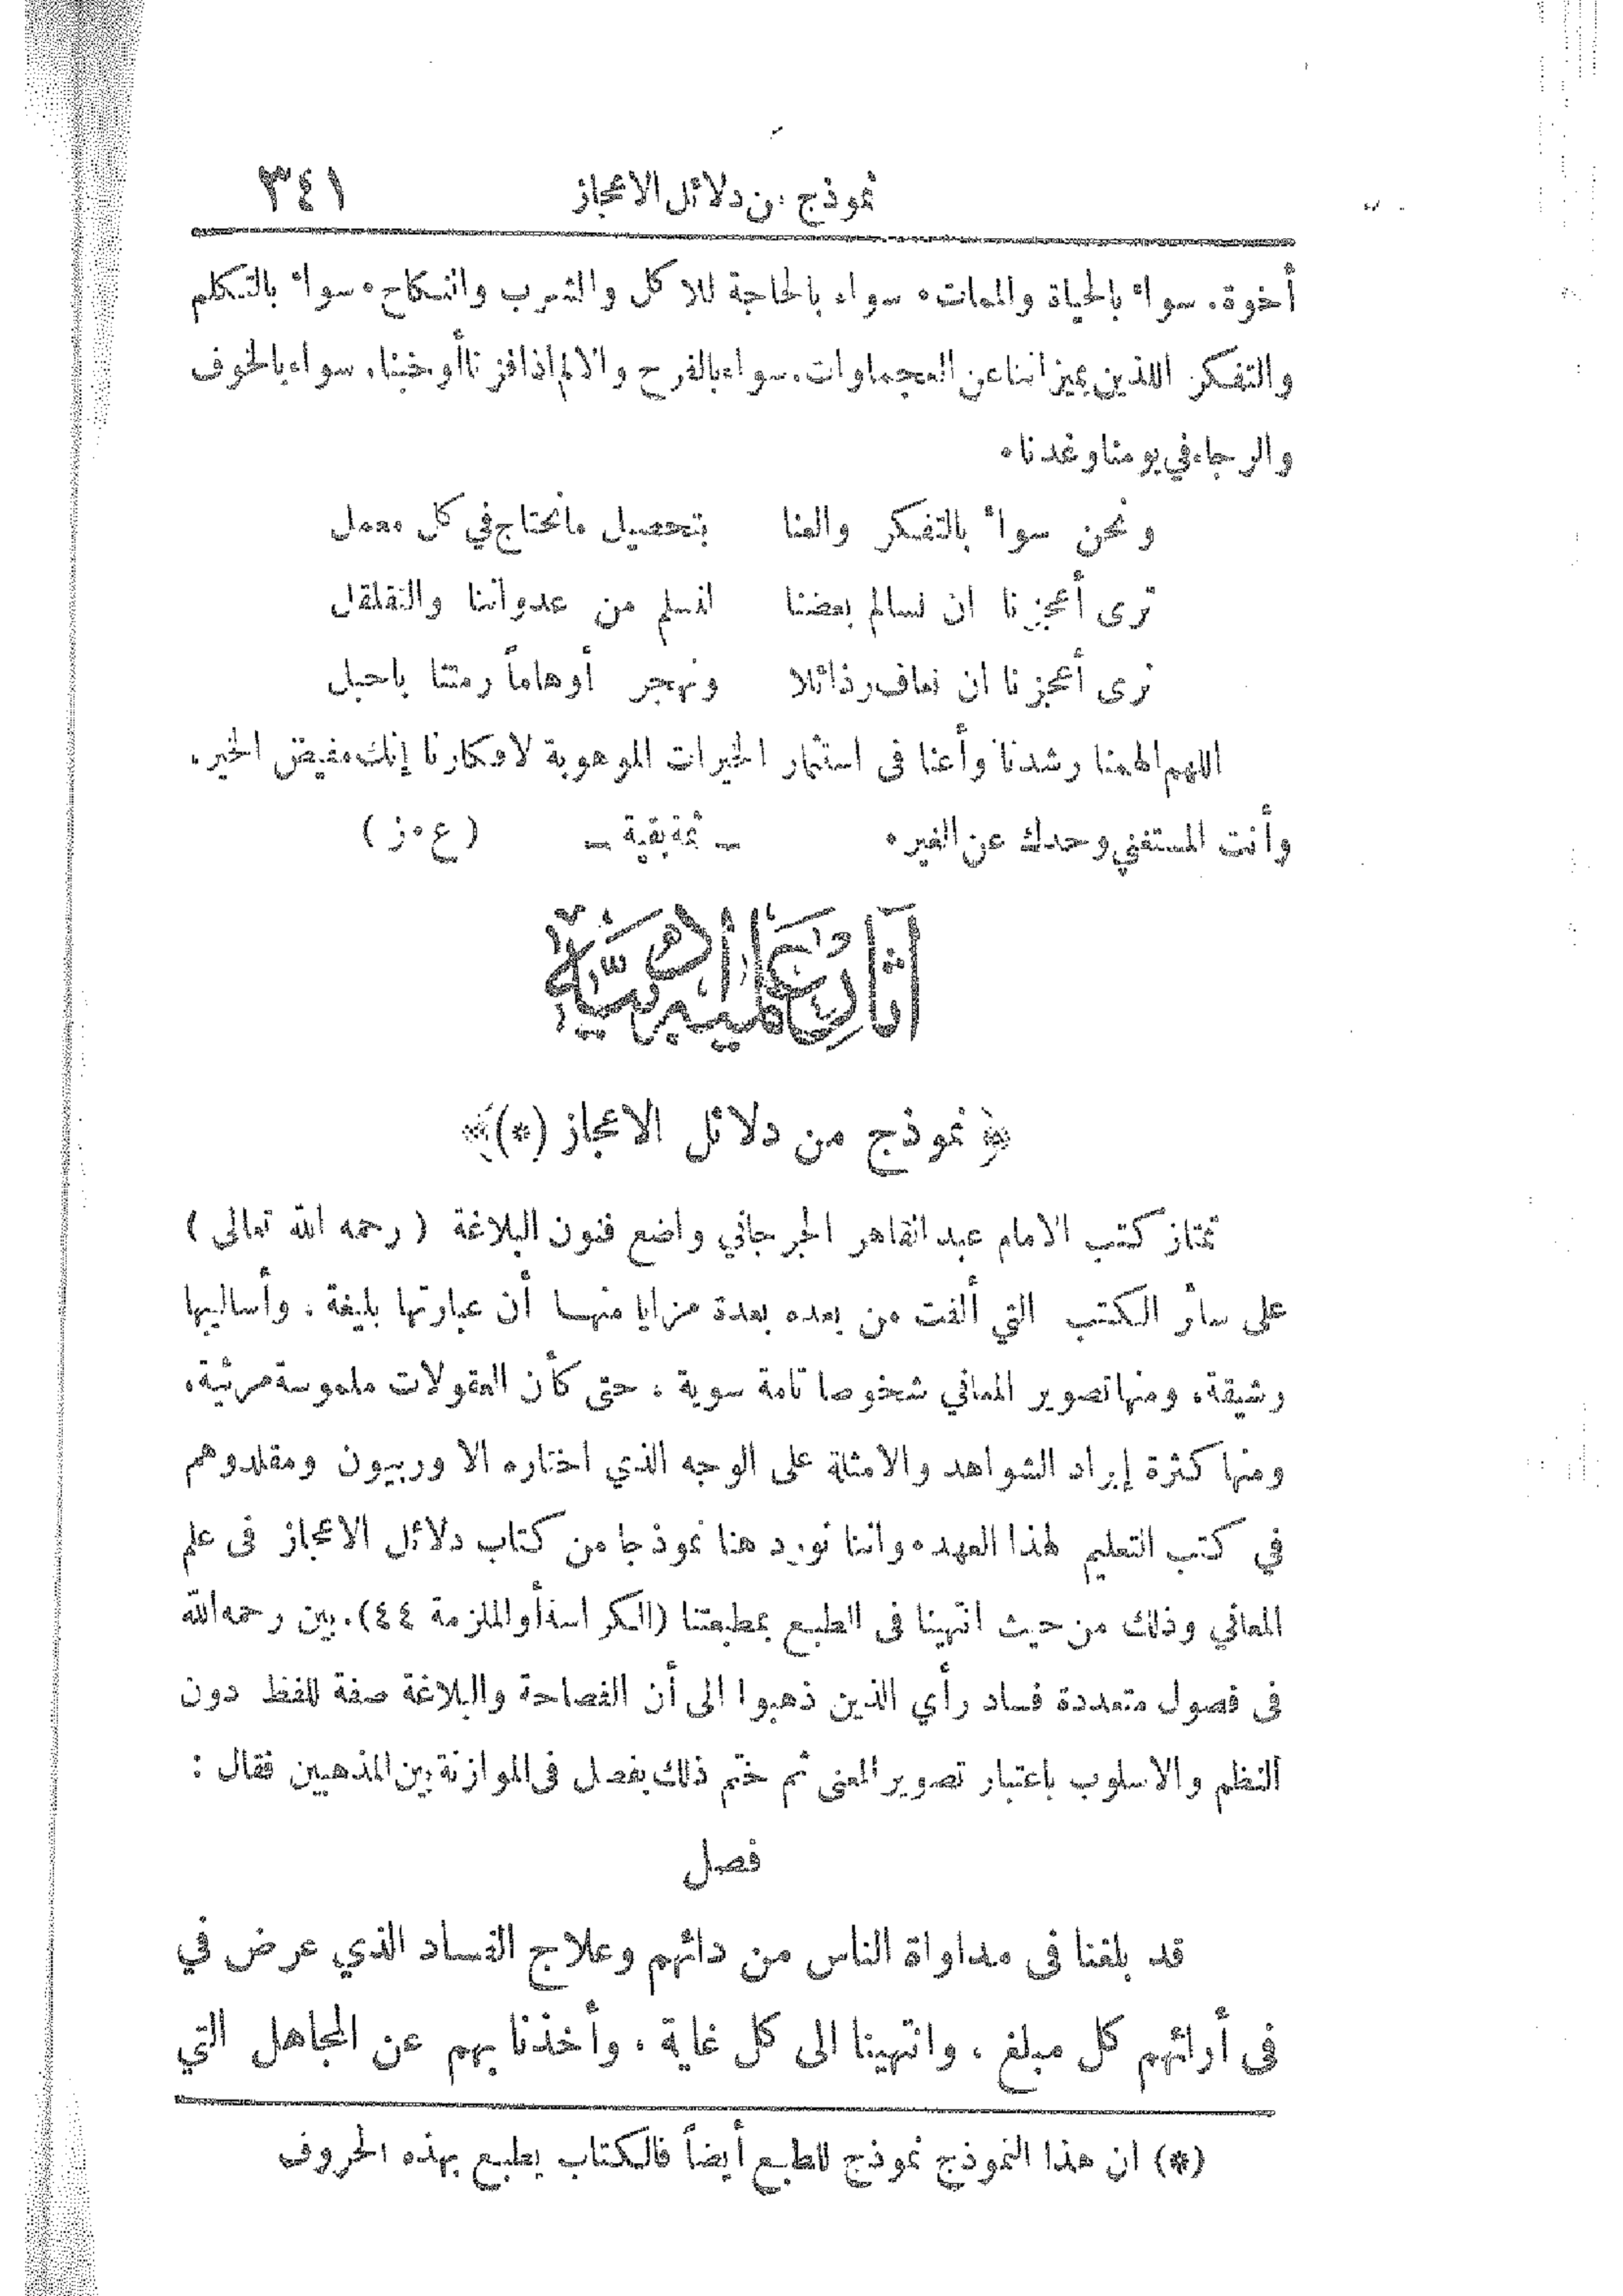 نموذج من دلائل الاعجاز ٣٤١
أخوة. سواء بالحياة والممات. سواء بالحاجة للاكل والشرب والنكاح. سواء بالتكلم
والتفكر اللذين يميزاننا عن العجماوات. سواء بالفرح والالم اذا فزنا أو خبنا. سواء بالخوف
والرجاء في يومنا وغدنا.
ونحن سواء بالتفكر والعنا بتحصيل ما نحتاج في كل معمل
ترى أعجزنا ان نسالم بعضنا لنسلم من عدواننا والتقلقل
ترى أعجزنا ان نعاف رذائلا ونهجر أوهاماً رمتنا باحبل
اللهم الهمنا رشدنا وأعنا فى استثمار الخيرات الموهوبة لافكارنا إنك مفيض الخير.
وأنت المستغني وحدك عن الغير. ــ ثمة بقية ــ (ع.ز)
آثار علمية أدبية
﴿ نموذج من دلائل الاعجاز (*) ﴾
تمتاز كتب الامام عبد القاهر الجرجاني واضع فنون البلاغة (رحمه الله تعالى)
على سائر الكتب التي ألفت من بعده بعدة مزايا منها أن عبارتها بليغة ، وأساليبها
رشيقة ، ومنها تصوير المعاني شخوصا تامة سوية ، حتى كأن المعقولات ملموسة مرئية ،
ومنها كثرة إيراد الشواهد والامثلة على الوجه الذي اختاره الاوربيون ومقلدوهم
في كتب التعليم لهذا العهد. واننا نورد هنا نموذجا من كتاب دلائل الاعجاز فى علم
المعاني وذلك من حيث انتهينا فى الطبع بمطبعتنا (الكراسة أو الملزمة ٤٤). بين رحمه الله
فى فصول متعددة فساد رأي الذين ذهبوا الى أن الفصاحة والبلاغة صفة للفظ دون
النظم والاسلوب باعتبار تصوير المعنى ثم ختم ذلك بفصل فى الموازنة بين المذهبين فقال :
فصل
قد بلغنا فى مداواة الناس من دائهم وعلاج الفساد الذي عرض في
فى أرائهم كل مبلغ ، وانتهينا الى كل غاية ، وأخذنا بهم عن المجاهل التي
(*) ان هذا النموذج نموذج للطبع أيضاً فالكتاب يطبع بهذه الحروف